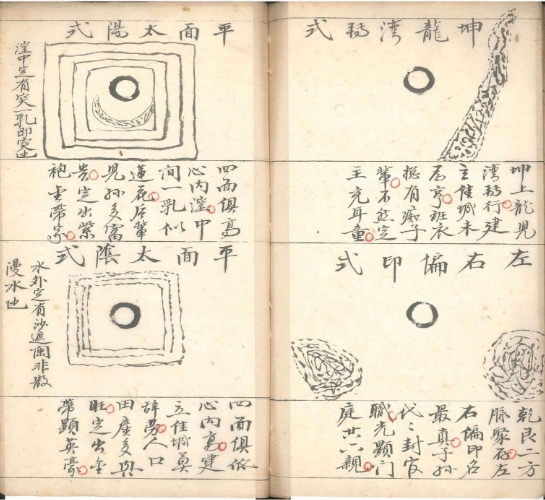 坤龍灣式
坤上龍見
灣行建
立佳城未
為亨班衣
有痴子
輩不然定
主充耳童
左右偏印式
乾艮二方
脉聚居左
右偏印名
最真子孫
代々封官
職光顯門
庭共六親
平面太陽式
四面俱高
心內漥中
間一乳似
蓮花居第
兒孫多富
貴定出紫
袍金帶客
漥中定有突一乳即突也
平面太陰式
四面俱低
心內高建
立佳城莫
辞勞人口
田庄多興
旺定出金
帶顯英豪
水外定有沙遮闌非散
漫水也